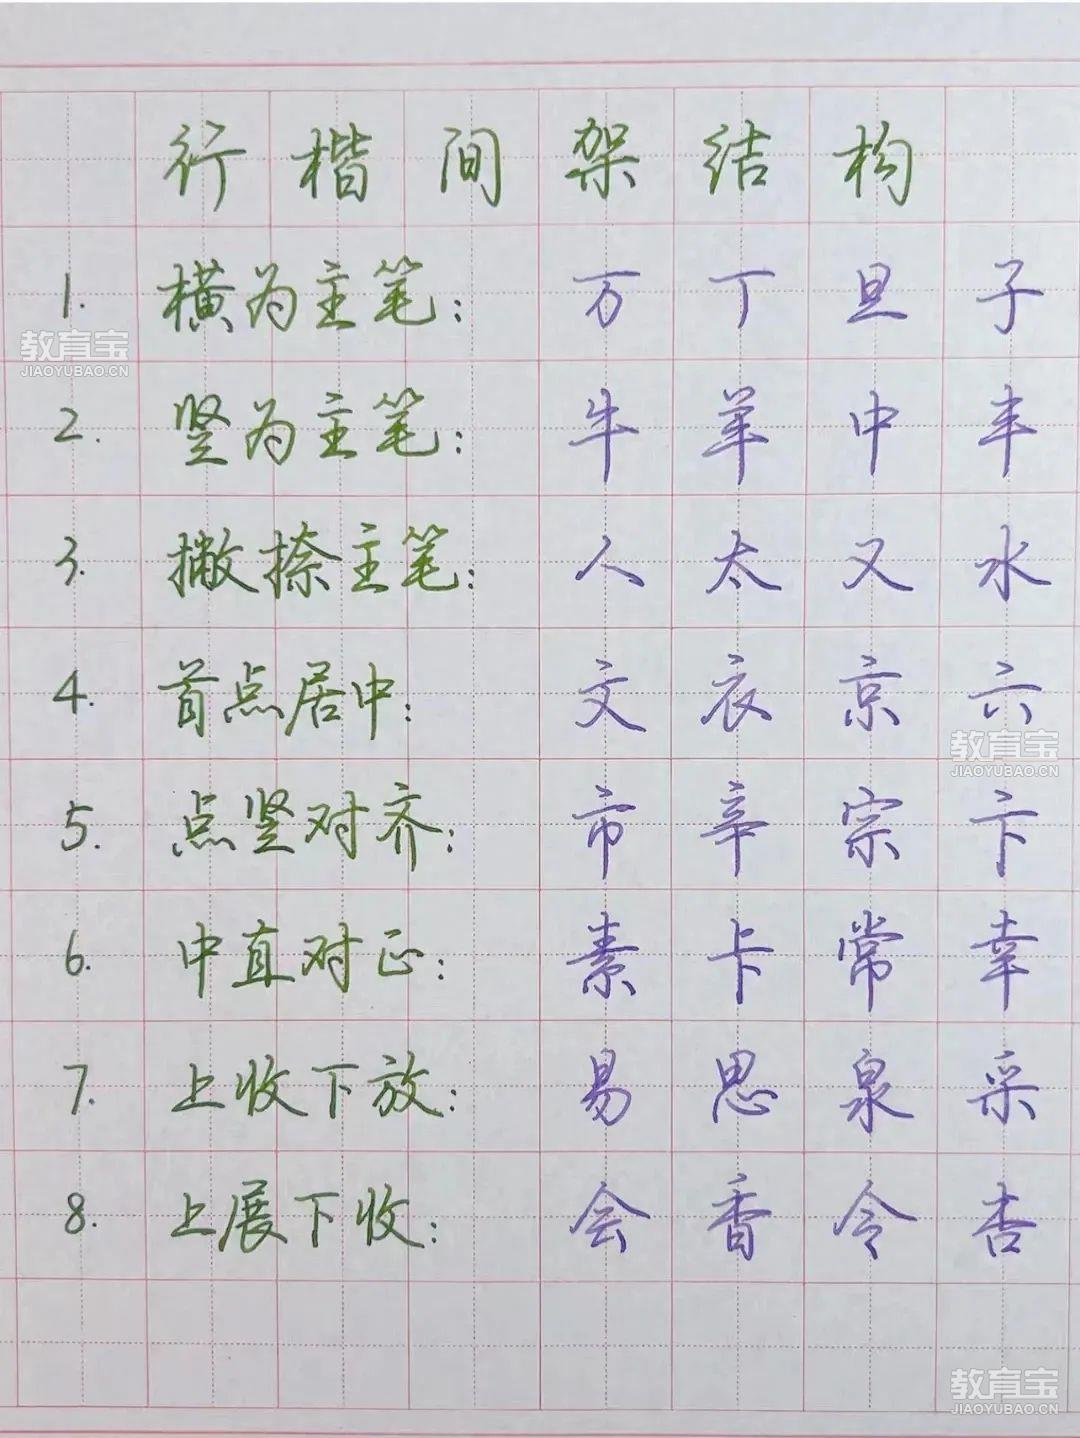 行楷间架结构
1. 横为主笔： 万 丁 旦 子
教育宝
JIAOYUBAO.CN
2. 竖为主笔： 牛 羊 中 丰
3. 撇捺主笔： 人 太 又 水
4. 首点居中： 文 衣 京 六
教育宝
JIAOYUBAO.CN
5. 点竖对齐： 市 辛 宗 卞
6. 中直对正： 素 卡 常 幸
7. 上收下放： 易 思 泉 采
8. 上展下收： 会 香 令 杏
教育宝
JIAOYUBAO.CN